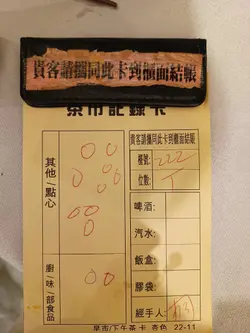 貴客請攜同此卡到櫃面結帳
茶市記錄卡
其他┃點心
廚┃味┃部食品
貴客請攜同此卡到櫃面結帳
檯號: 222
位數:
啤酒:
汽水:
飯盒:
膠袋:
經手人:
早市/下午茶卡 杏色 22-11